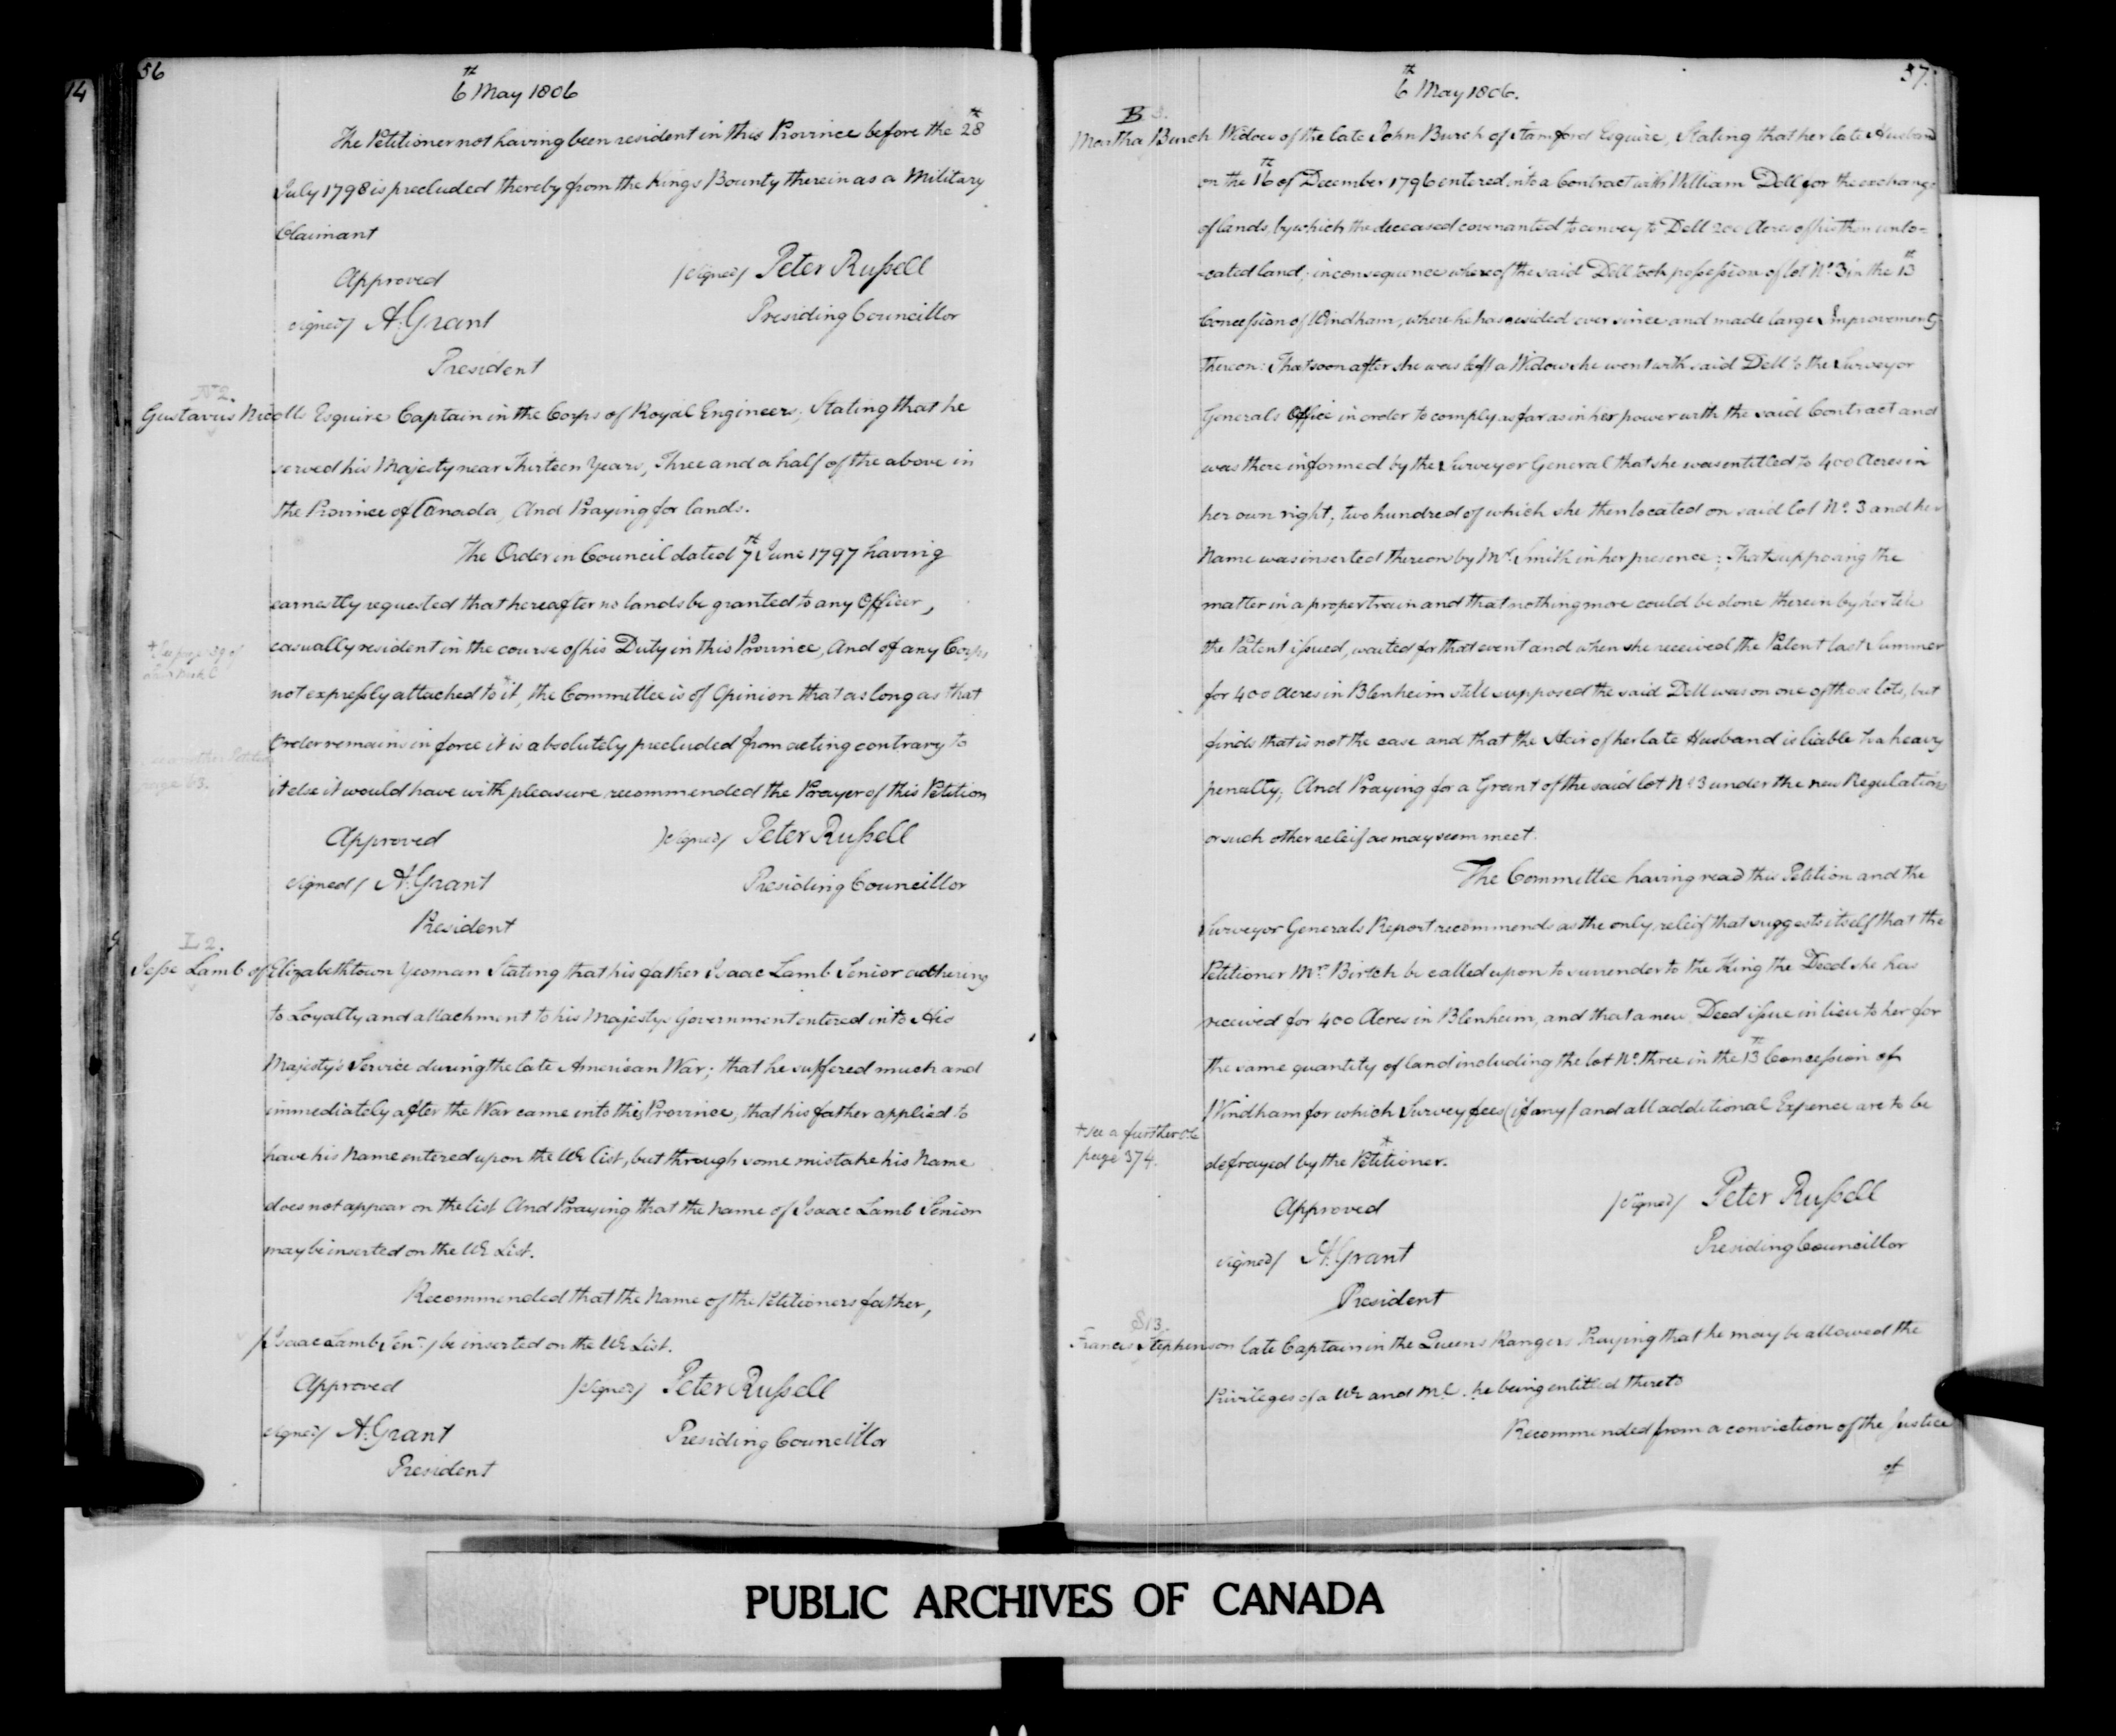 14
56
6th May 1806
The Petitioner not having been resident in this Province before the 28th
July 1798 is precluded thereby from the Kings Bounty therein as a Military
Claimant
Approved /signed/ Peter Russell
signed/ A. Grant Presiding Councillor
President
N 2.
Gustavus Nicolls Esquire Captain in the Corps of Royal Engineers, Stating that he
served his Majesty near Thirteen Years, Three and a half of the above in
the Province of Canada, And Praying for lands.
The Order in Council dated 7th June 1797 having
earnestly requested that hereafter no lands be granted to any Officer,
casually resident in the course of his Duty in this Province, And of any Corps
not expressly attached to it, the Committee is of Opinion that as long as that
Order remains in force it is absolutely precluded from acting contrary to
it else it would have with pleasure recommended the Prayer of this Petition
page 63.
Approved /signed/ Peter Russell
signed/ A. Grant Presiding Councillor
President
L 2.
Jesse Lamb of Elizabethtown Yeoman Stating that his father Isaac Lamb Senior adhering
to Loyalty and attachment to his Majestys Government entered into His
Majesty's Service during the late American War; that he suffered much and
immediately after the War came into this Province, that his father applied to
have his Name entered upon the UE List, but through some mistake his Name
does not appear on the list And Praying that the Name of Isaac Lamb Senior
may be inserted on the UE List.
Recommended that the Name of the Petitioners father,
/Isaac Lamb Senr/ be inserted on the UE List.
Approved /signed/ Peter Russell
signed/ A. Grant Presiding Councillor
President
57.
6th May 1806.
B 3.
Martha Burch Widow of the late John Burch of Stamford Esquire, Stating that her late Husband
on the 16th of December 1796 entered into a Contract with William Dell for the exchange
of lands, by which the deceased covenanted to convey to Dell 200 Acres of his then unlo=
=cated land; in consequence whereof the said Dell took possession of lot No. 3 in the 13th
Concession of Windham, where he has resided ever since and made large Improvements
thereon: That soon after she was left a Widow she went with said Dell to the Surveyor
Generals Office in order to comply as far as in her power with the said Contract and
was there informed by the Surveyor General that she was entitled to 400 Acres in
her own right, two hundred of which she then located on said lot No. 3 and her
Name was inserted thereon by Mr. Smith in her presence; That supposing the
matter in a proper train and that nothing more could be done therein by her till
the Patent issued, waited for that event and when she received the Patent last Summer
for 400 Acres in Blenheim still supposed the said Dell was on one of those lots, but
finds that is not the case and that the Heir of her late Husband is liable to a heavy
penalty; And Praying for a Grant of the said lot No. 3 under the new Regulations
or such other releif as may seem meet.
The Committee having read this Petition and the
Surveyor Generals Report recommends as the only releif that suggests itself that the
Petitioner Mrs Birtch be called upon to surrender to the King the Deed she has
received for 400 Acres in Blenheim, and that a new Deed issue in lieu to her for
the same quantity of land including the lot No. three in the 13th Concession of
Windham for which Survey fees (if any) and all additional Expence are to be
defrayed by the Petitioner.+
+ see a further O.C.
page 374.
Approved /signed/ Peter Russell
signed/ A. Grant Presiding Councillor
President
S 13.
Francis Stephenson late Captain in the Queens Rangers Praying that he may be allowed the
Privileges of a UE and M.C. he being entitled thereto
Recommended from a conviction of the Justice
of
PUBLIC ARCHIVES OF CANADA